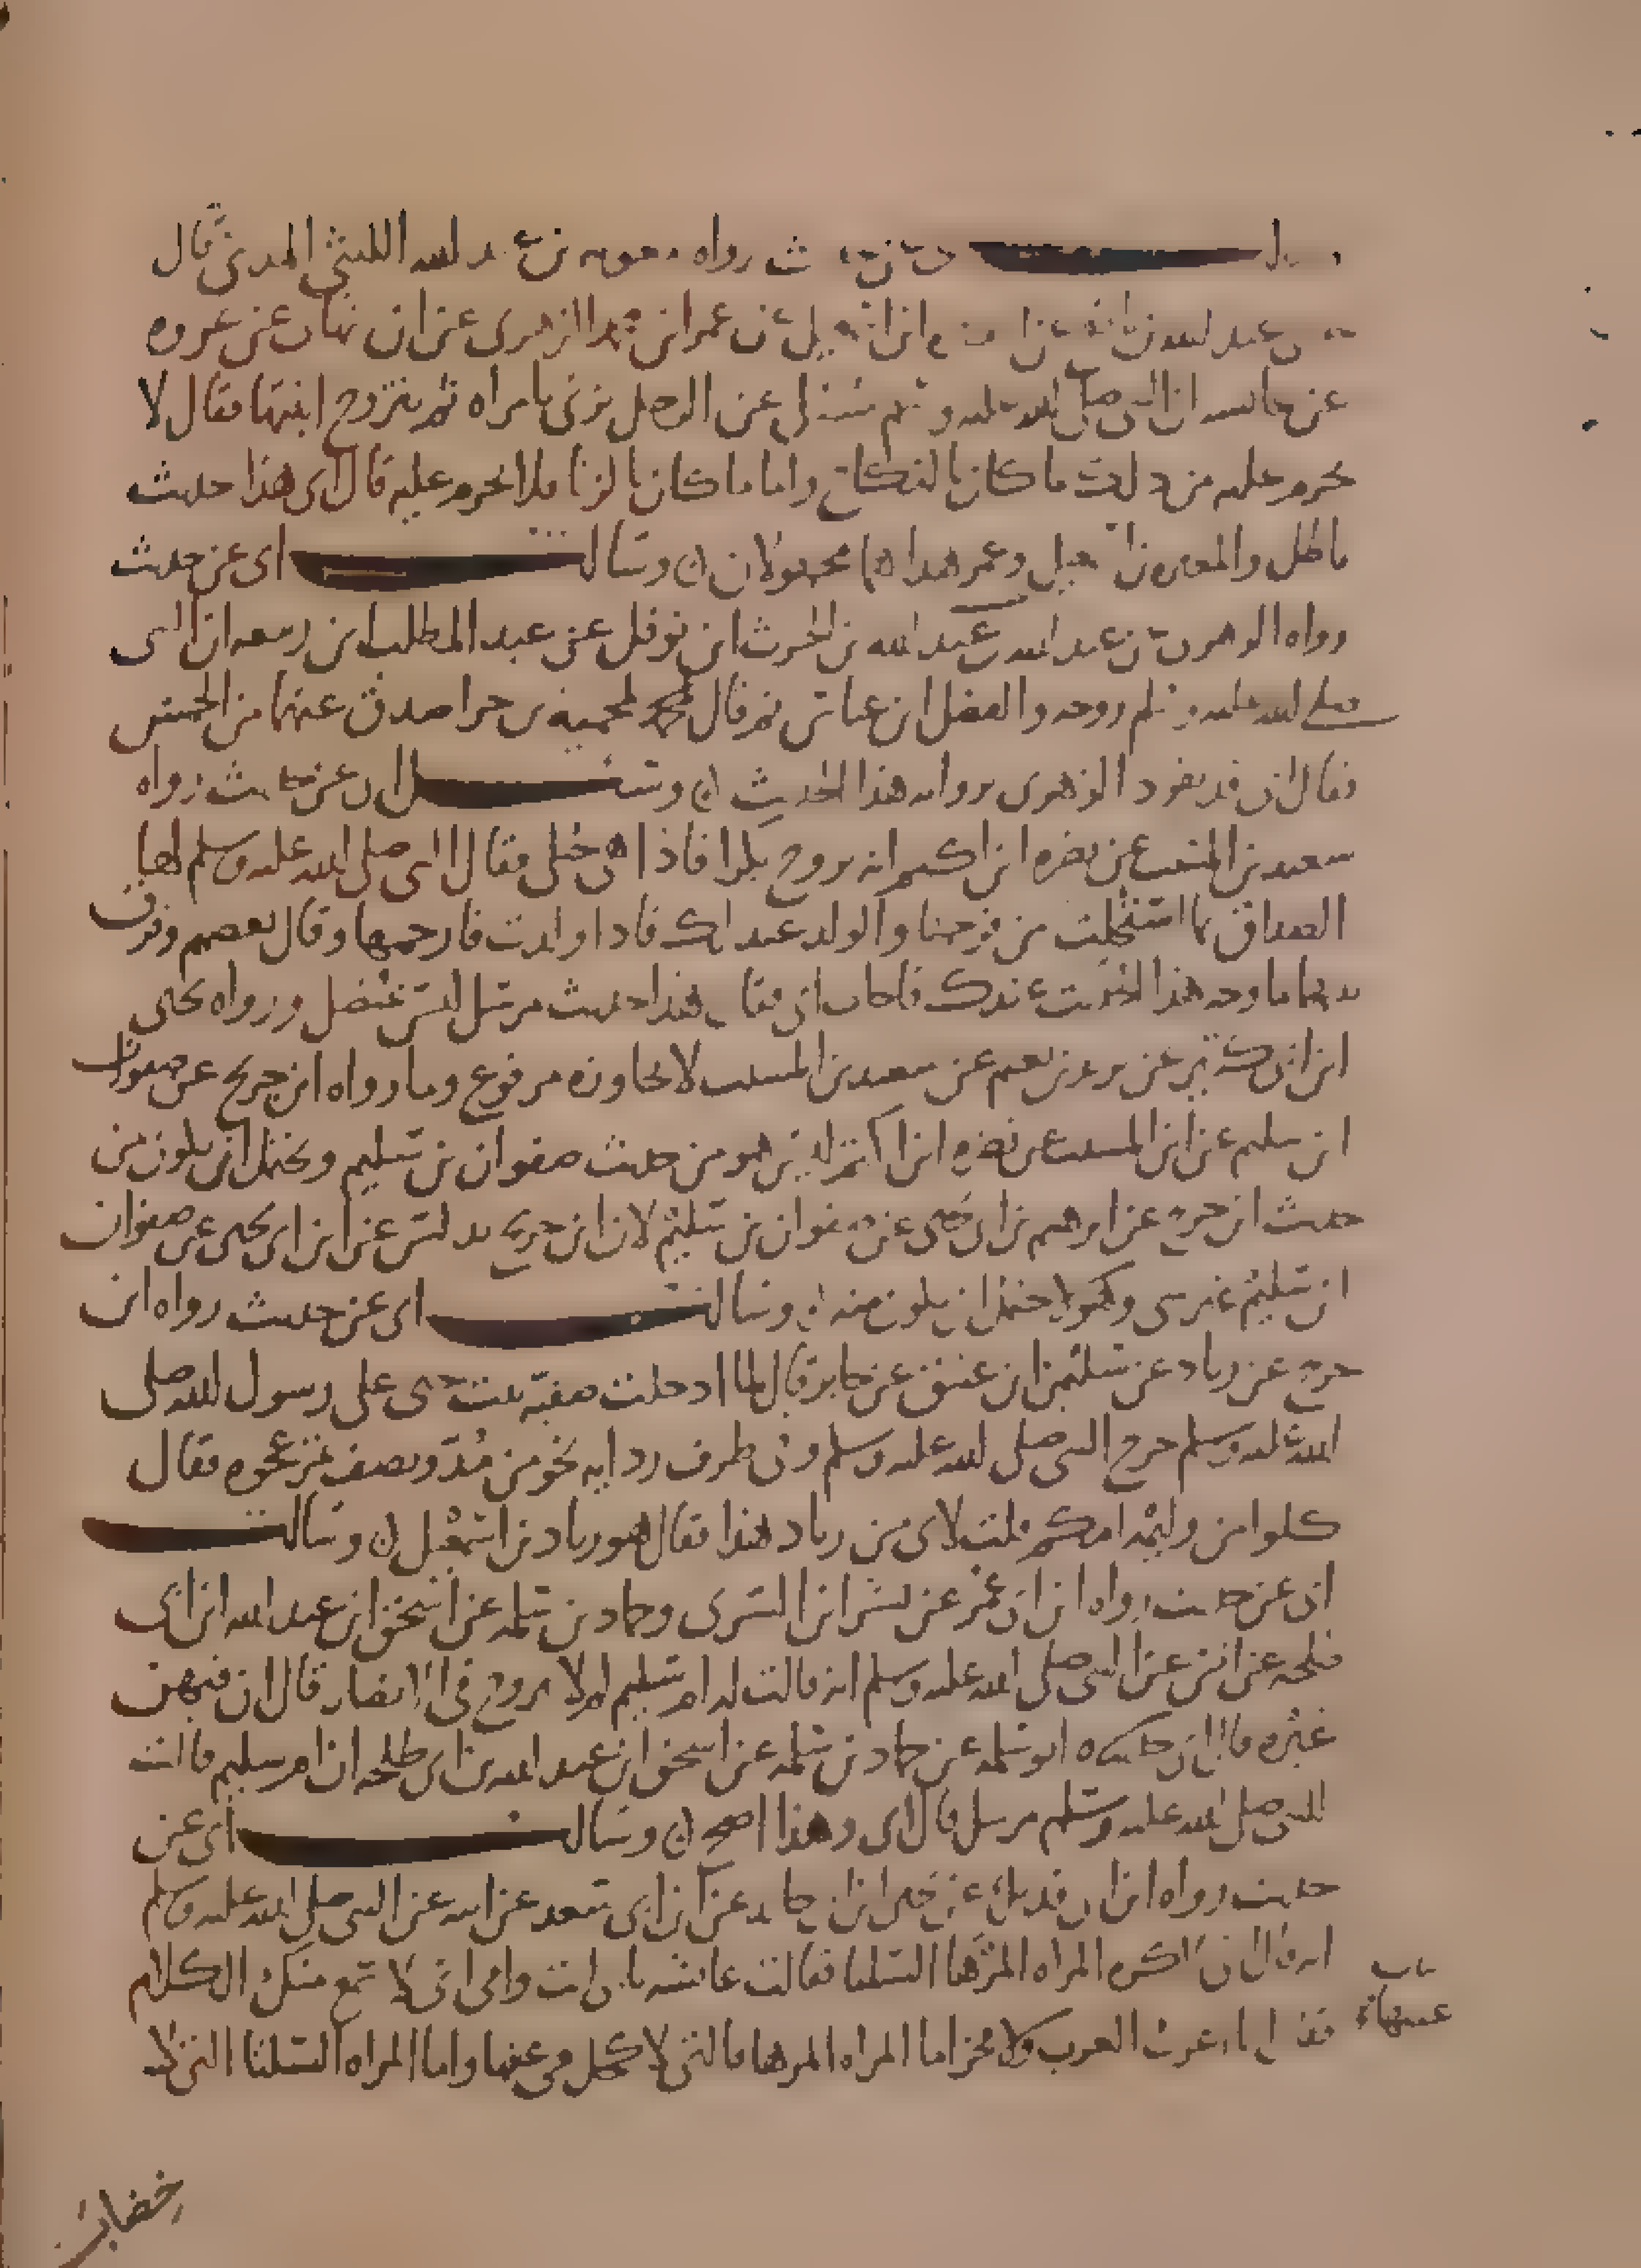 وسالت ابي عن حديث رواه معويه بن عبد الله الليثي المدني قال
عن عبد الله بن نافع عن المغيره ابن اسمعيل عن عمر ابن محمد الزهري عن ابن شهاب عن عروه
عن عايشه ان النبي صلى الله عليه وسلم سئل عن الرجل يزني بامراه ثم يتزوج ابنتها فقال لا
يحرم عليه من ذلك ما كان بالنكاح واما ما كان بالزنا فلا يحرم عليه قال ابي هذا حديث
باطل والمغيره بن اسمعيل وعمر هذا هما مجهولان وسالت ابي عن حديث
رواه الزهري عن عبد الله بن عبد الله بن الحرث ابن نوفل عن عبد المطلب ابن ربيعه ان النبي
صلى الله عليه وسلم زوجه والفضل ابن عباس ثم قال لمحميه بن جزا اصدق عنهما من الخمس
فقال ابي قد تفرد الزهري بروايه هذا الحديث وسئل ابي عن حديث رواه
سعيد بن المسيب عن بصره ابن اكثم انه تزوج بكرا فاذا هي حبلى فقال النبي صلى الله عليه وسلم لها
الصداق بما استحللت من فرجها والولد عبد لك فاذا ولدت فارجمها وقال بعضهم وفرق
بينهما ما وجه هذا الحديث عندك فاجاب ابي فقال هذا حديث مرسل ليس بمتصل ورواه يحيى
ابن ابي كثير عن يزيد بن نعيم عن سعيد بن المسيب لا يجاوزه مرفوع وما رواه ابن جريج عن صفوان
ابن سليم عن ابن المسيب عن نضره ابن اكثم ليس هو من حديث صفوان بن سليم ويحتمل ان يكون من
حديث ابن جريج عن ابرهيم بن ابي يحيى عن صفوان بن سليم لان ابن جريج يدلس عن ابن ابي يحيى عن صفوان
ابن سليم غير شي وهو لا يحتمل ان يكون منه وسالت ابي عن حديث رواه ابن
جريج عن زياد عن سليمن ابن عتيق عن جابر قال لما ادخلت صفيه بنت حيي على رسول الله صلى
الله عليه وسلم خرج النبي صلى الله عليه وسلم وفي طرف ردايه نحو من مد ونصف تمر عجوه فقال
كلوا من وليمه امكم قلت لابي من زياد هذا فقال هو زياد بن اسمعيل وسالت
ابي عن حديث رواه ابن ابي عمر عن بشر ابن السري وحماد بن سلمه عن اسحق ابن عبد الله ابن ابي
طلحه عن انس عن النبي صلى الله عليه وسلم انه قالت له ام سليم الا تزوج في الانصار قال ان فيهن
غيره قال ابي حدثناه ابو سلمه عن حماد بن سلمه عن اسحق ابن عبد الله بن ابي طلحه ان ام سليم قالت
للنبي صلى الله عليه وسلم مرسل قال ابي وهذا اصح وسالت ابي عن
حديث رواه ابن ابي فديك عن يحيى ابن خالد عن ابن ابي سعد عن ابيه عن النبي صلى الله عليه وسلم
انه قال اني اكره المراه المرها السلتا فقالت عايشه بابي انت وامي اني لا سمع منك الكلام
فقال اما عرب العرب ولا فخر اما المراه المرها فالتي لا تكحل في عينها واما المراه السلتا التي لا
باب
عينها
خضاب